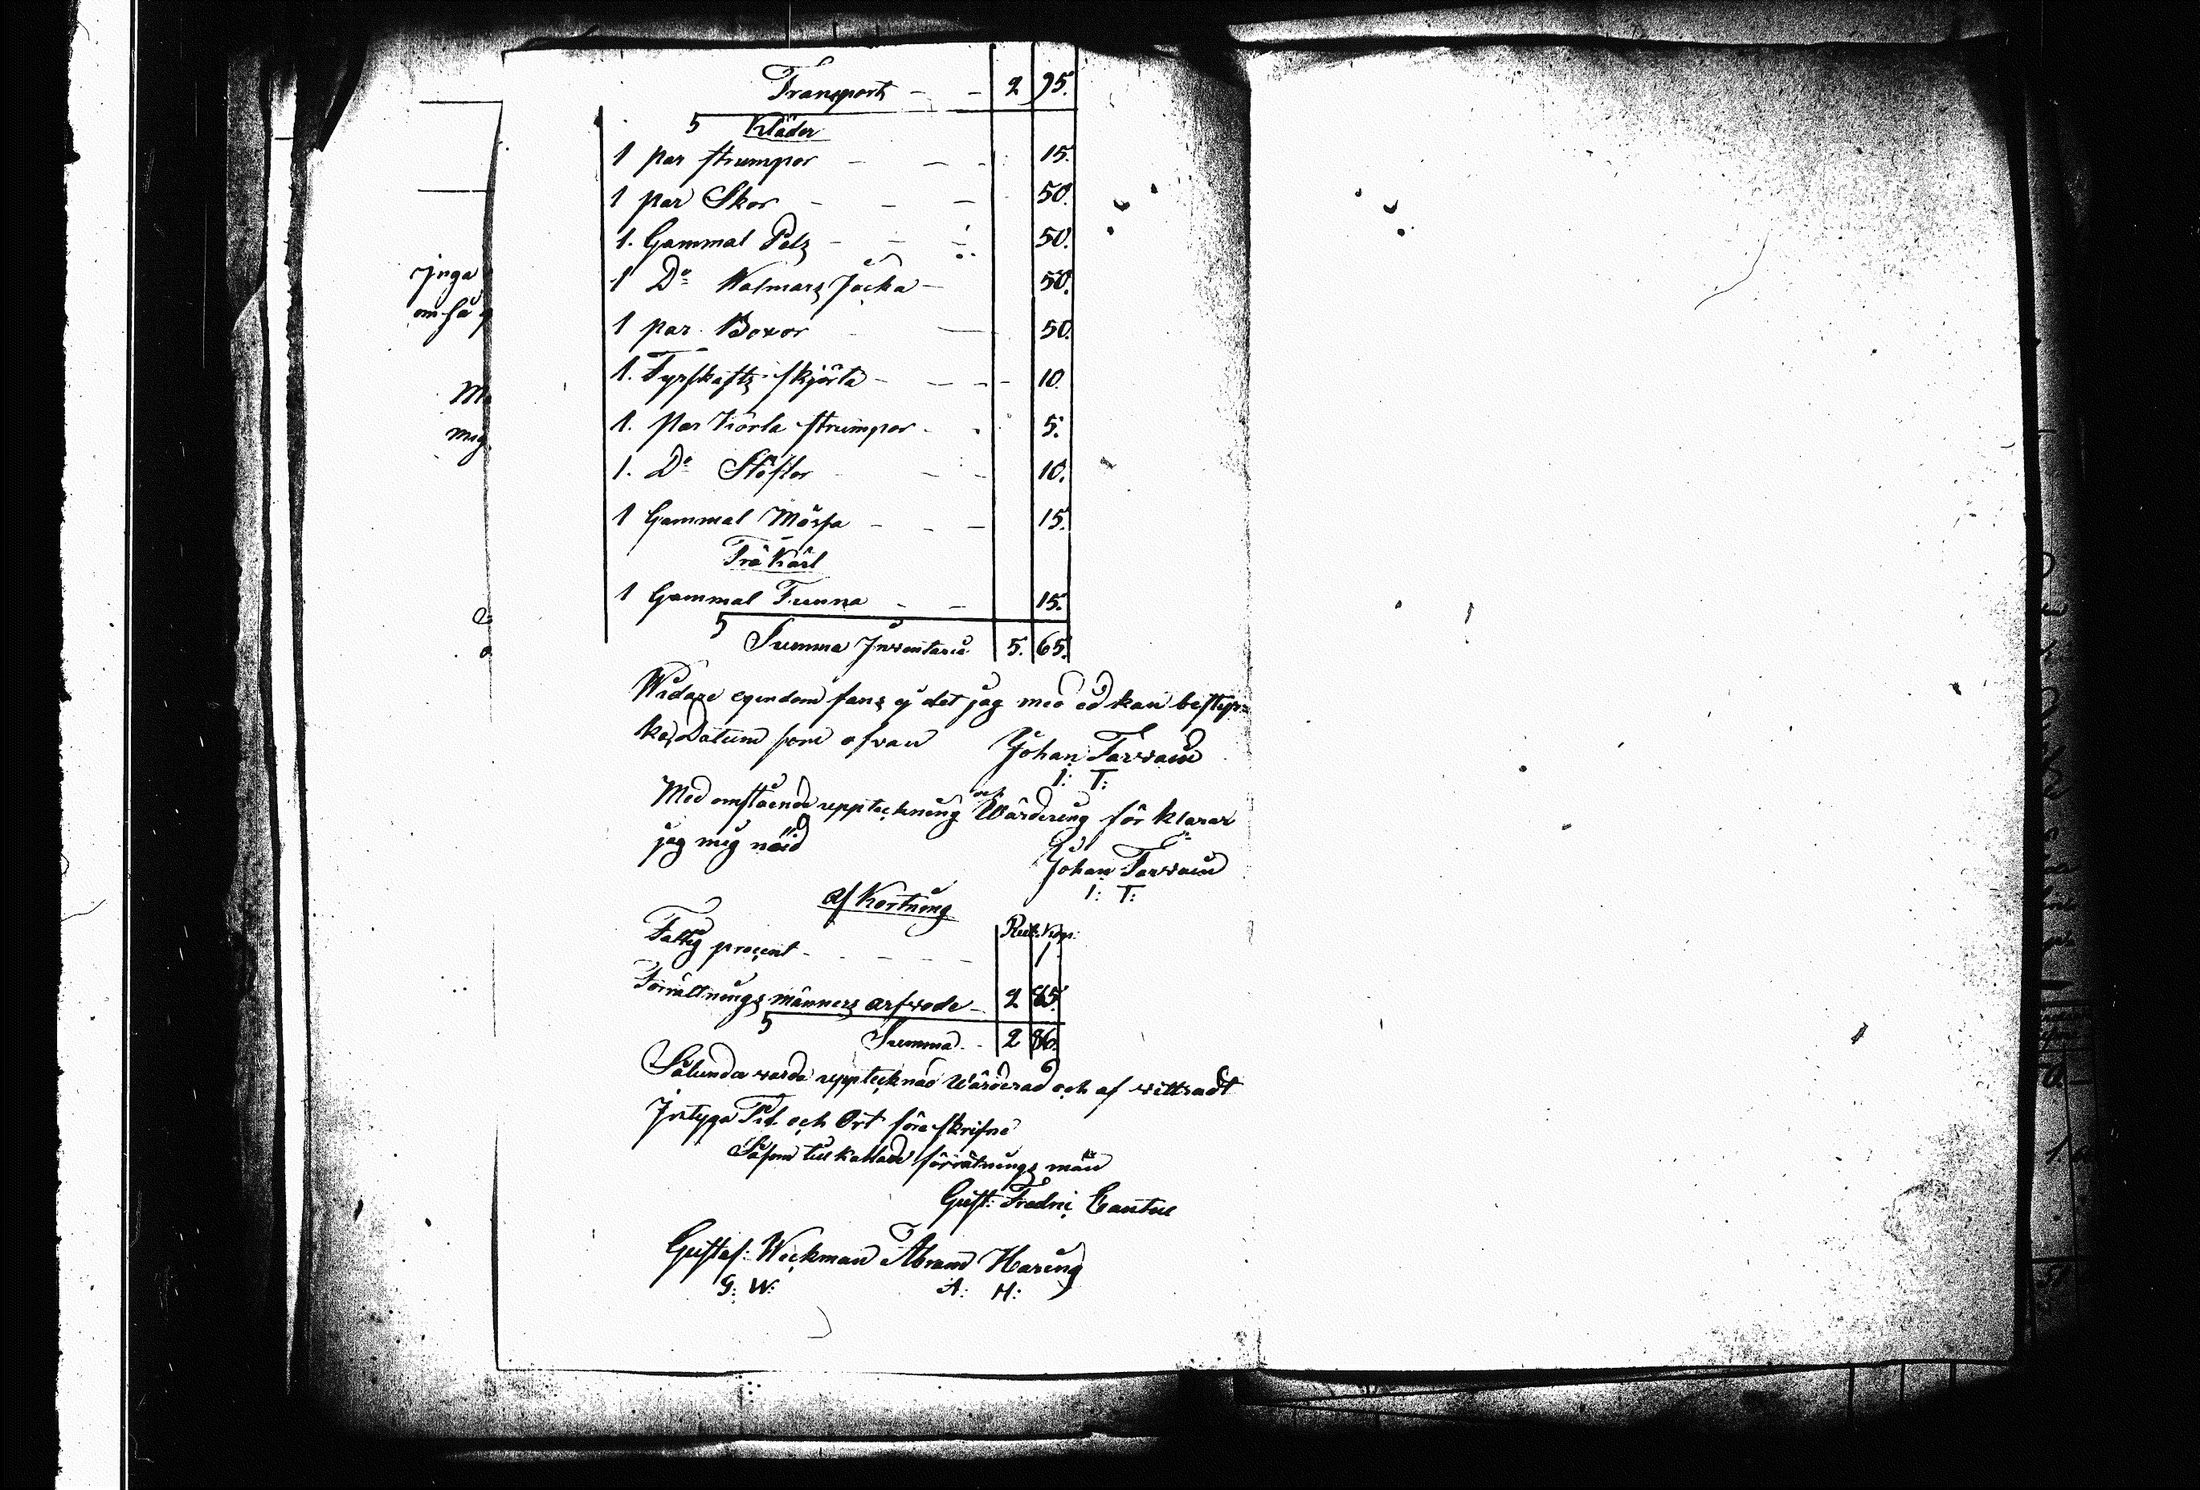 Transport 2 95.
Kläder
1 par strumpor 15.
1 par Skor 50.
1. Gammal Pelz 50.
1 Do Walmarz Jacka 50.
1 par Boxor 50.
1. Fyrskaftz skjorta 10.
1. Par Körta strumpor 5.
1. Do Stöflor 10.
1 Gammal Mössa 15.
Trä Kärl
1 Gammal Tunna 15.
Summa Inventarii 5. 65.
Widare egendom fanz ej det jag med ed kan bestyr=
ka, Datum som ofvan Johan
I: T:
Med omstående uppteckning och Wärdering för klarar
jag mig nöid
Johan
I: T:
Af Kortning
Rub: Kop:
Fattig procent 1
Förrättningz männerz arfvode 2 85.
Summa 2 86.
Sålunda varda upptecknad Wärderad och af
Intyga Tid och Ort föreskrifne
Såsom till kallade förrätningz män
Gust: Fredric
Gustaf: Weckman Abram Haring
G: W: A: H:
Inga
om så
mig